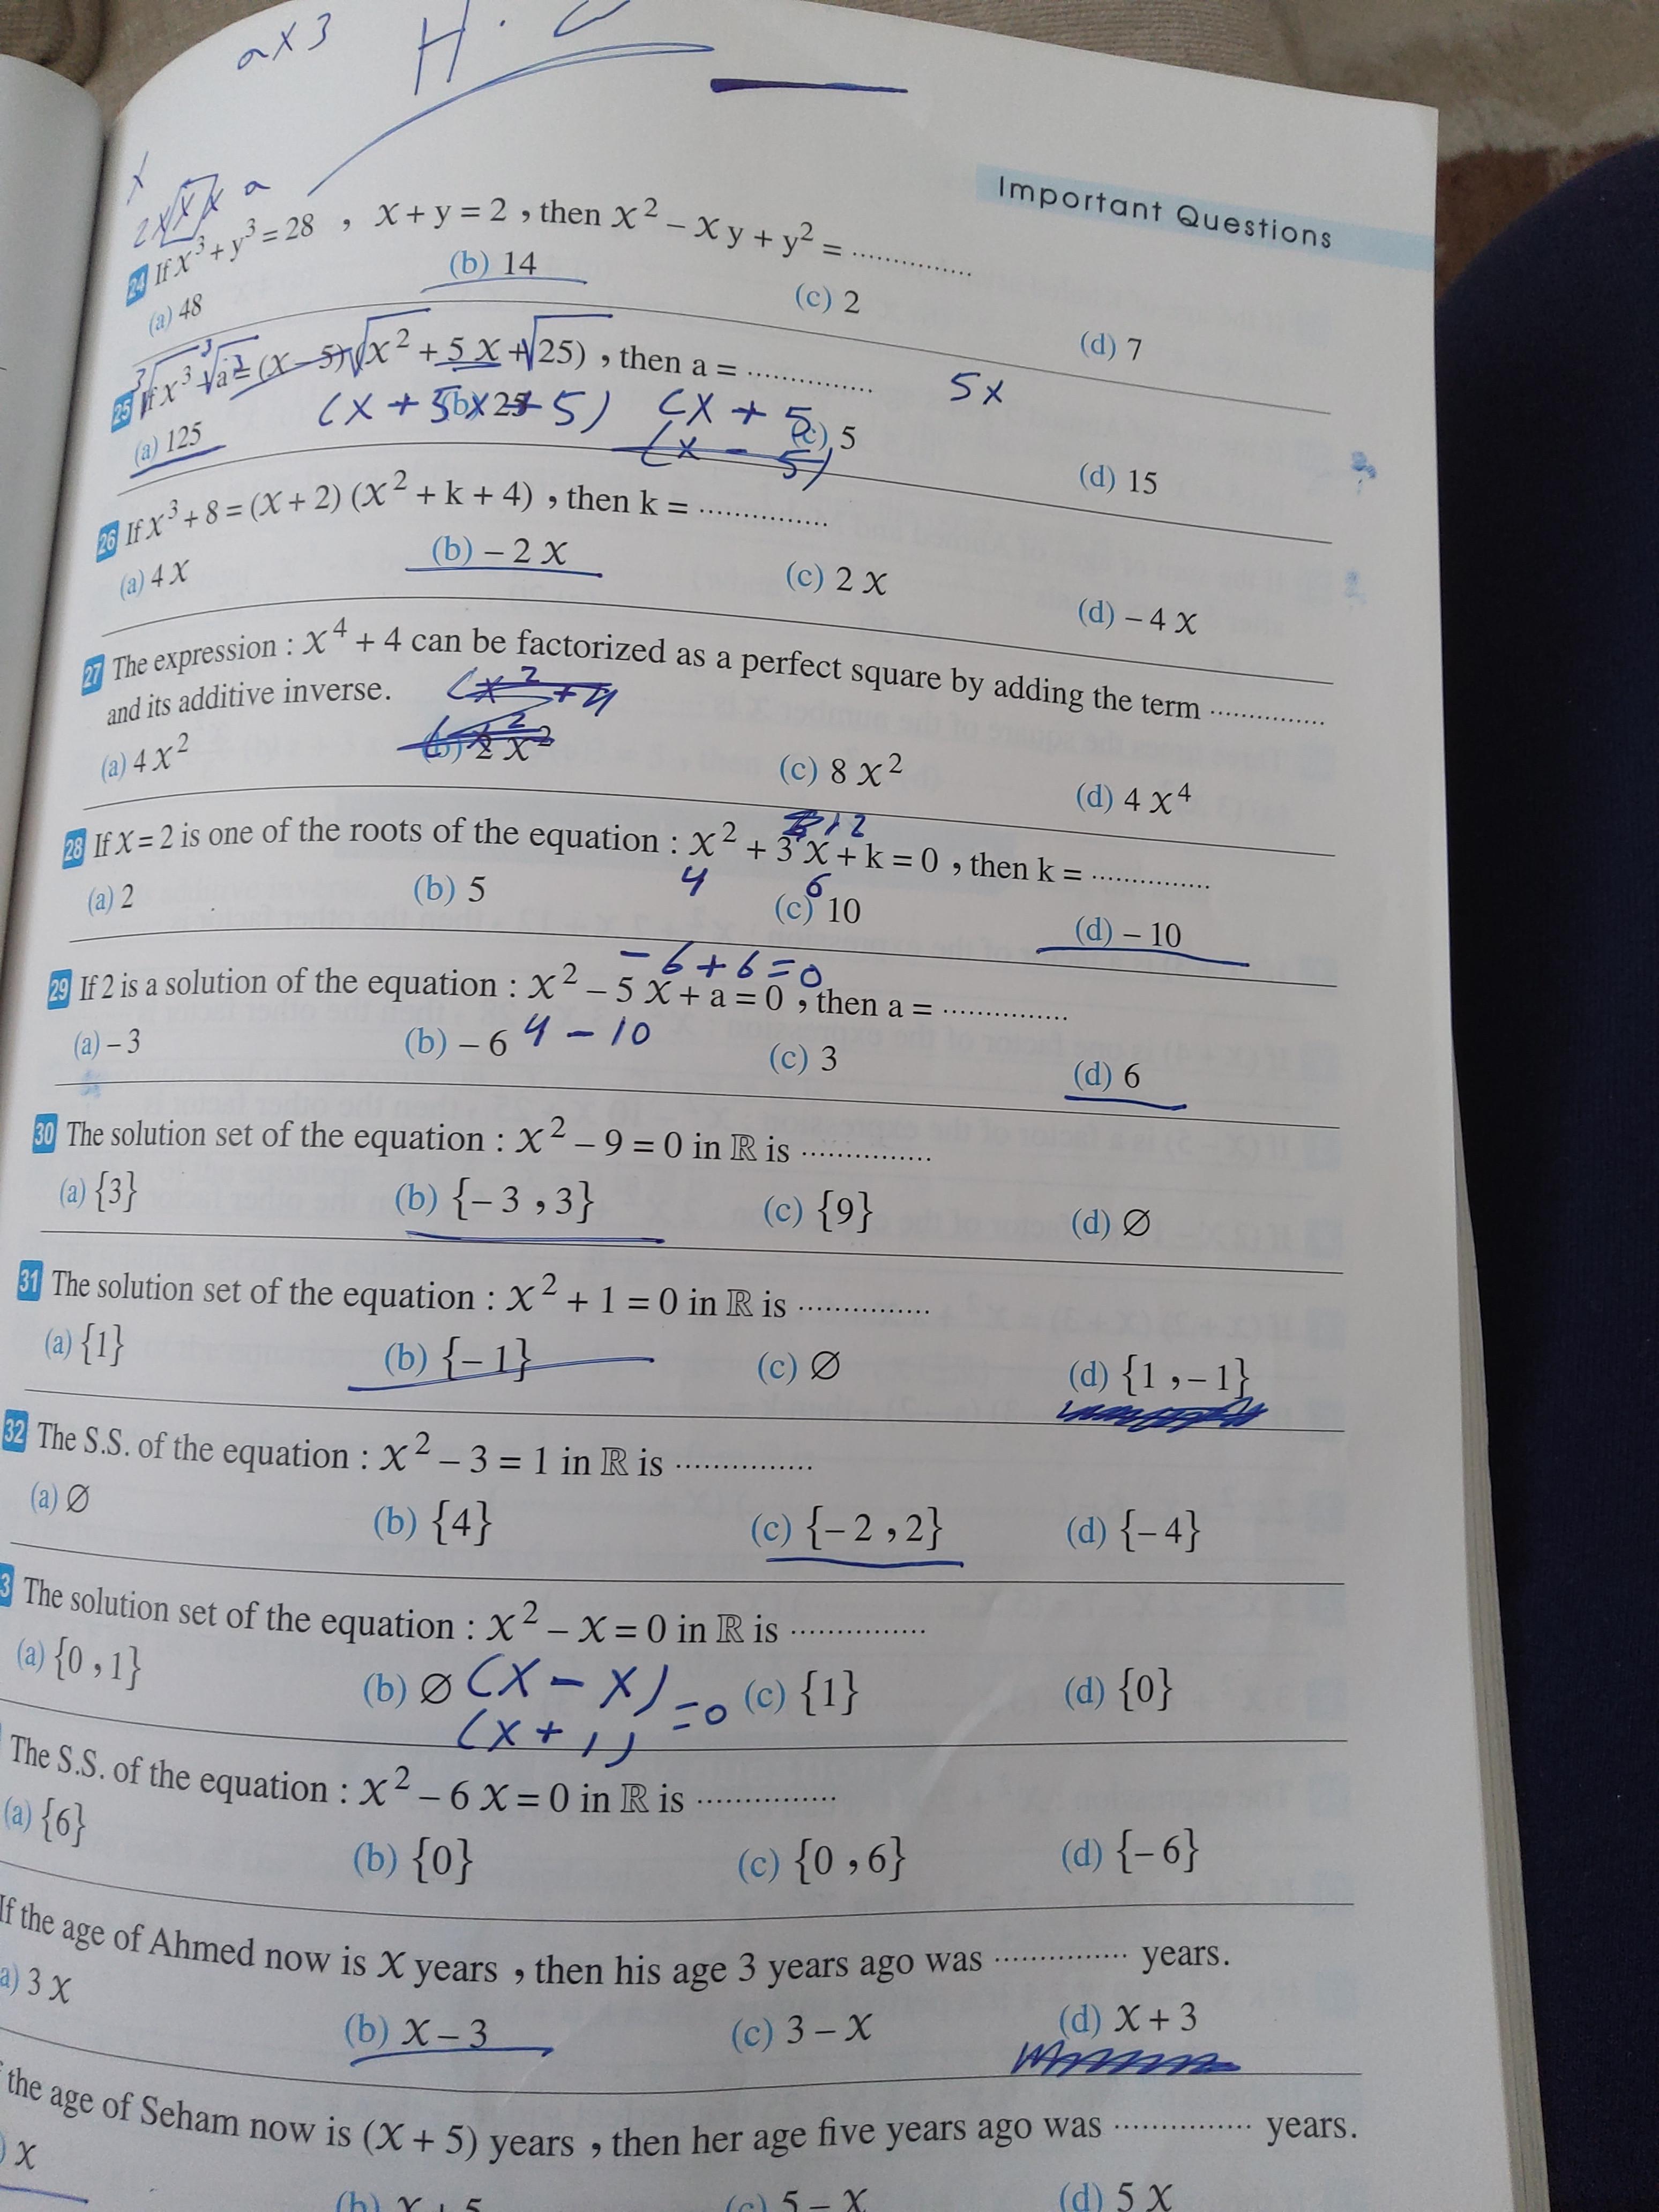 a x 3 H.
Important Questions
24 If x³ + y³ = 28 , x + y = 2 , then x² – x y + y² = ...............
(a) 48 (b) 14 (c) 2 (d) 7
25 If x³ – a = (x – 5) (x² + 5 x + 25) , then a = ............... 5x
(x + 5x + 5) (x + 5
(x – 5)
(a) 125 (b) 25 (c) 5 (d) 15
26 If x³ + 8 = (x + 2) (x² + k + 4) , then k = ...............
(a) 4 x (b) – 2 x (c) 2 x (d) – 4 x
27 The expression : x⁴ + 4 can be factorized as a perfect square by adding the term ...............
and its additive inverse. (x² + 4
(a) 4 x² (b) 2 x² (c) 8 x² (d) 4 x⁴
28 If x = 2 is one of the roots of the equation : x² + 3 x + k = 0 , then k = ...............
4 6
(a) 2 (b) 5 (c) 10 (d) – 10
– 6 + 6 = 0
29 If 2 is a solution of the equation : x² – 5 x + a = 0 , then a = ...............
4 – 10
(a) – 3 (b) – 6 (c) 3 (d) 6
30 The solution set of the equation : x² – 9 = 0 in ℝ is ...............
(a) {3} (b) {– 3 , 3} (c) {9} (d) ∅
31 The solution set of the equation : x² + 1 = 0 in ℝ is ...............
(a) {1} (b) {– 1} (c) ∅ (d) {1 , – 1}
32 The S.S. of the equation : x² – 3 = 1 in ℝ is ...............
(a) ∅ (b) {4} (c) {– 2 , 2} (d) {– 4}
3 The solution set of the equation : x² – x = 0 in ℝ is ...............
(a) {0 , 1} (b) ∅ (c) {1} (d) {0}
(x – x) = 0
(x + 1)
The S.S. of the equation : x² – 6 x = 0 in ℝ is ...............
(a) {6} (b) {0} (c) {0 , 6} (d) {– 6}
If the age of Ahmed now is x years , then his age 3 years ago was ............... years.
a) 3 x (b) x – 3 (c) 3 – x (d) x + 3
the age of Seham now is (x + 5) years , then her age five years ago was ............... years.
) x (b) x + 5 (c) 5 – x (d) 5 x